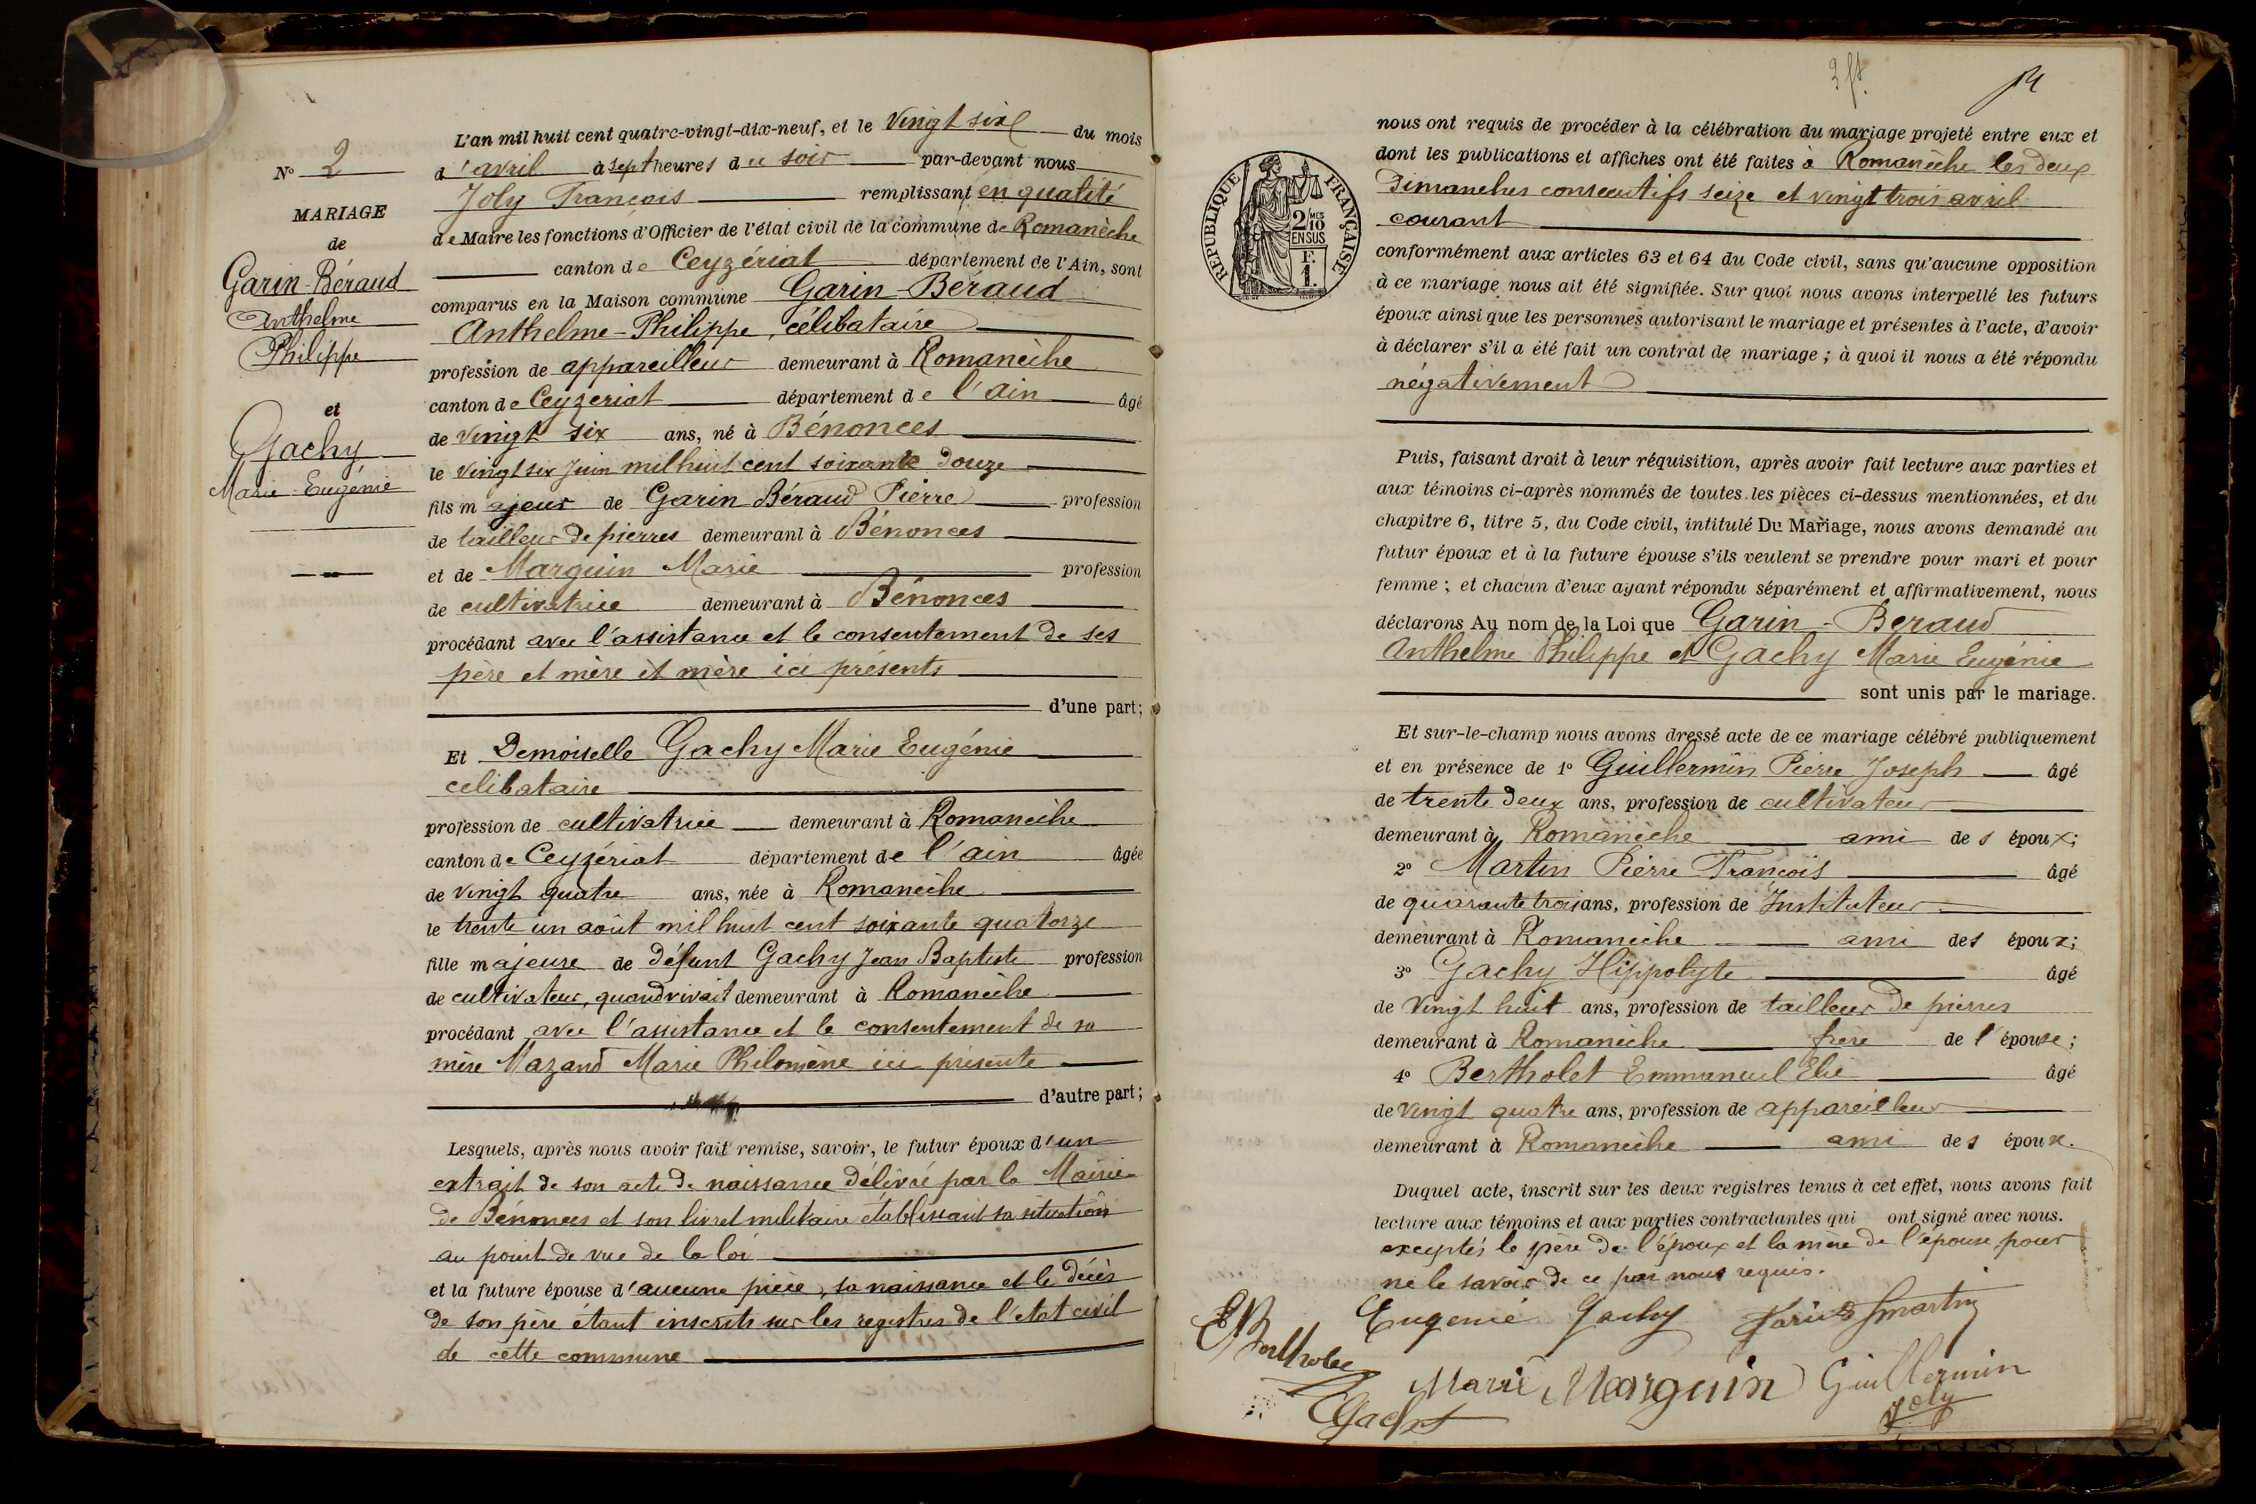 N° 2
MARIAGE
de
Garin-Béraud
Anthelme
Philippe
et
Gachy
Marie-Eugénie
L'an mil huit cent quatre-vingt-dix-neuf, et le vingt six du mois
d'avril à sept heures du soir par-devant nous
Joly François remplissant en qualité
de Maire les fonctions d'Officier de l'état civil de la commune de Romanèche
canton de Ceyzériat département de l'Ain, sont
comparus en la Maison commune Garin-Béraud
Anthelme-Philippe, célibataire
profession de appareilleur demeurant à Romanèche
canton de Ceyzeriat département de l'Ain âgé
de vingt six ans, né à Bénonces
le vingt six Juin mil huit cent soixante douze
fils majeur de Garin Béraud Pierre profession
de tailleur de pierres demeurant à Bénonces
et de Marguin Marie profession
de cultivatrice demeurant à Bénonces
procédant avec l'assistance et le consentement de ses
père et mère et mère ici présents
d'une part;
Et Demoiselle Gachy Marie Eugénie
celibataire
profession de cultivatrice demeurant à Romanèche
canton de Ceyzériat département de l'ain âgée
de vingt quatre ans, née à Romanèche
le trente un août mil huit cent soixante quatorze
fille majeure de défunt Gachy Jean Baptiste profession
de cultivateur, quand vivait demeurant à Romanèche
procédant avec l'assistance et le consentement de sa
mère Mazand Marie Philomène ici présente
d'autre part;
Lesquels, après nous avoir fait remise, savoir, le futur époux d'un
extrait de son acte de naissance délivré par la Mairie
de Bénonces et son livret militaire établissant sa situation
au point de vue de la loi
et la future épouse d'aucune pièce, sa naissance et le décès
de son père étant inscrits sur les registres de l'état civil
de cette commune
RÉPUBLIQUE FRANÇAISE
2 MES
10
EN SUS
F.
1.
nous ont requis de procéder à la célébration du mariage projeté entre eux et
dont les publications et affiches ont été faites à Romanèche les deux
Dimanches consecutifs seize et vingt trois avril
courant
conformément aux articles 63 et 64 du Code civil, sans qu'aucune opposition
à ce mariage nous ait été signifiée. Sur quoi nous avons interpellé les futurs
époux ainsi que les personnes autorisant le mariage et présentes à l'acte, d'avoir
à déclarer s'il a été fait un contrat de mariage ; à quoi il nous a été répondu
négativement
Puis, faisant droit à leur réquisition, après avoir fait lecture aux parties et
aux témoins ci-après nommés de toutes les pièces ci-dessus mentionnées, et du
chapitre 6, titre 5, du Code civil, intitulé Du Mariage, nous avons demandé au
futur époux et à la future épouse s'ils veulent se prendre pour mari et pour
femme ; et chacun d'eux ayant répondu séparément et affirmativement, nous
déclarons Au nom de la Loi que Garin-Beraud
Anthelme Philippe et Gachy Marie Eugénie
sont unis par le mariage.
Et sur-le-champ nous avons dressé acte de ce mariage célébré publiquement
et en présence de 1° Guillermin Pierre Joseph âgé
de trente deux ans, profession de cultivateur
demeurant à Romanèche ami des époux;
2° Martin Pierre François âgé
de quarante trois ans, profession de Instituteur
demeurant à Romanèche ami des époux;
3° Gachy Hippolyte âgé
de vingt huit ans, profession de tailleur de pierres
demeurant à Romanèche frère de l'épouse;
4° Bertholet Emmanuel Elie âgé
de vingt quatre ans, profession de appareilleur
demeurant à Romanèche ami des époux.
Duquel acte, inscrit sur les deux registres tenus à cet effet, nous avons fait
lecture aux témoins et aux parties contractantes qui ont signé avec nous.
exceptés le père de l'époux et la mère de l'épouse pour
ne le savoir de ce par nous requis.
Eugenie Gachy
Martin
EBertholet
Marie Marguin Guillermin
Joly
Gachy